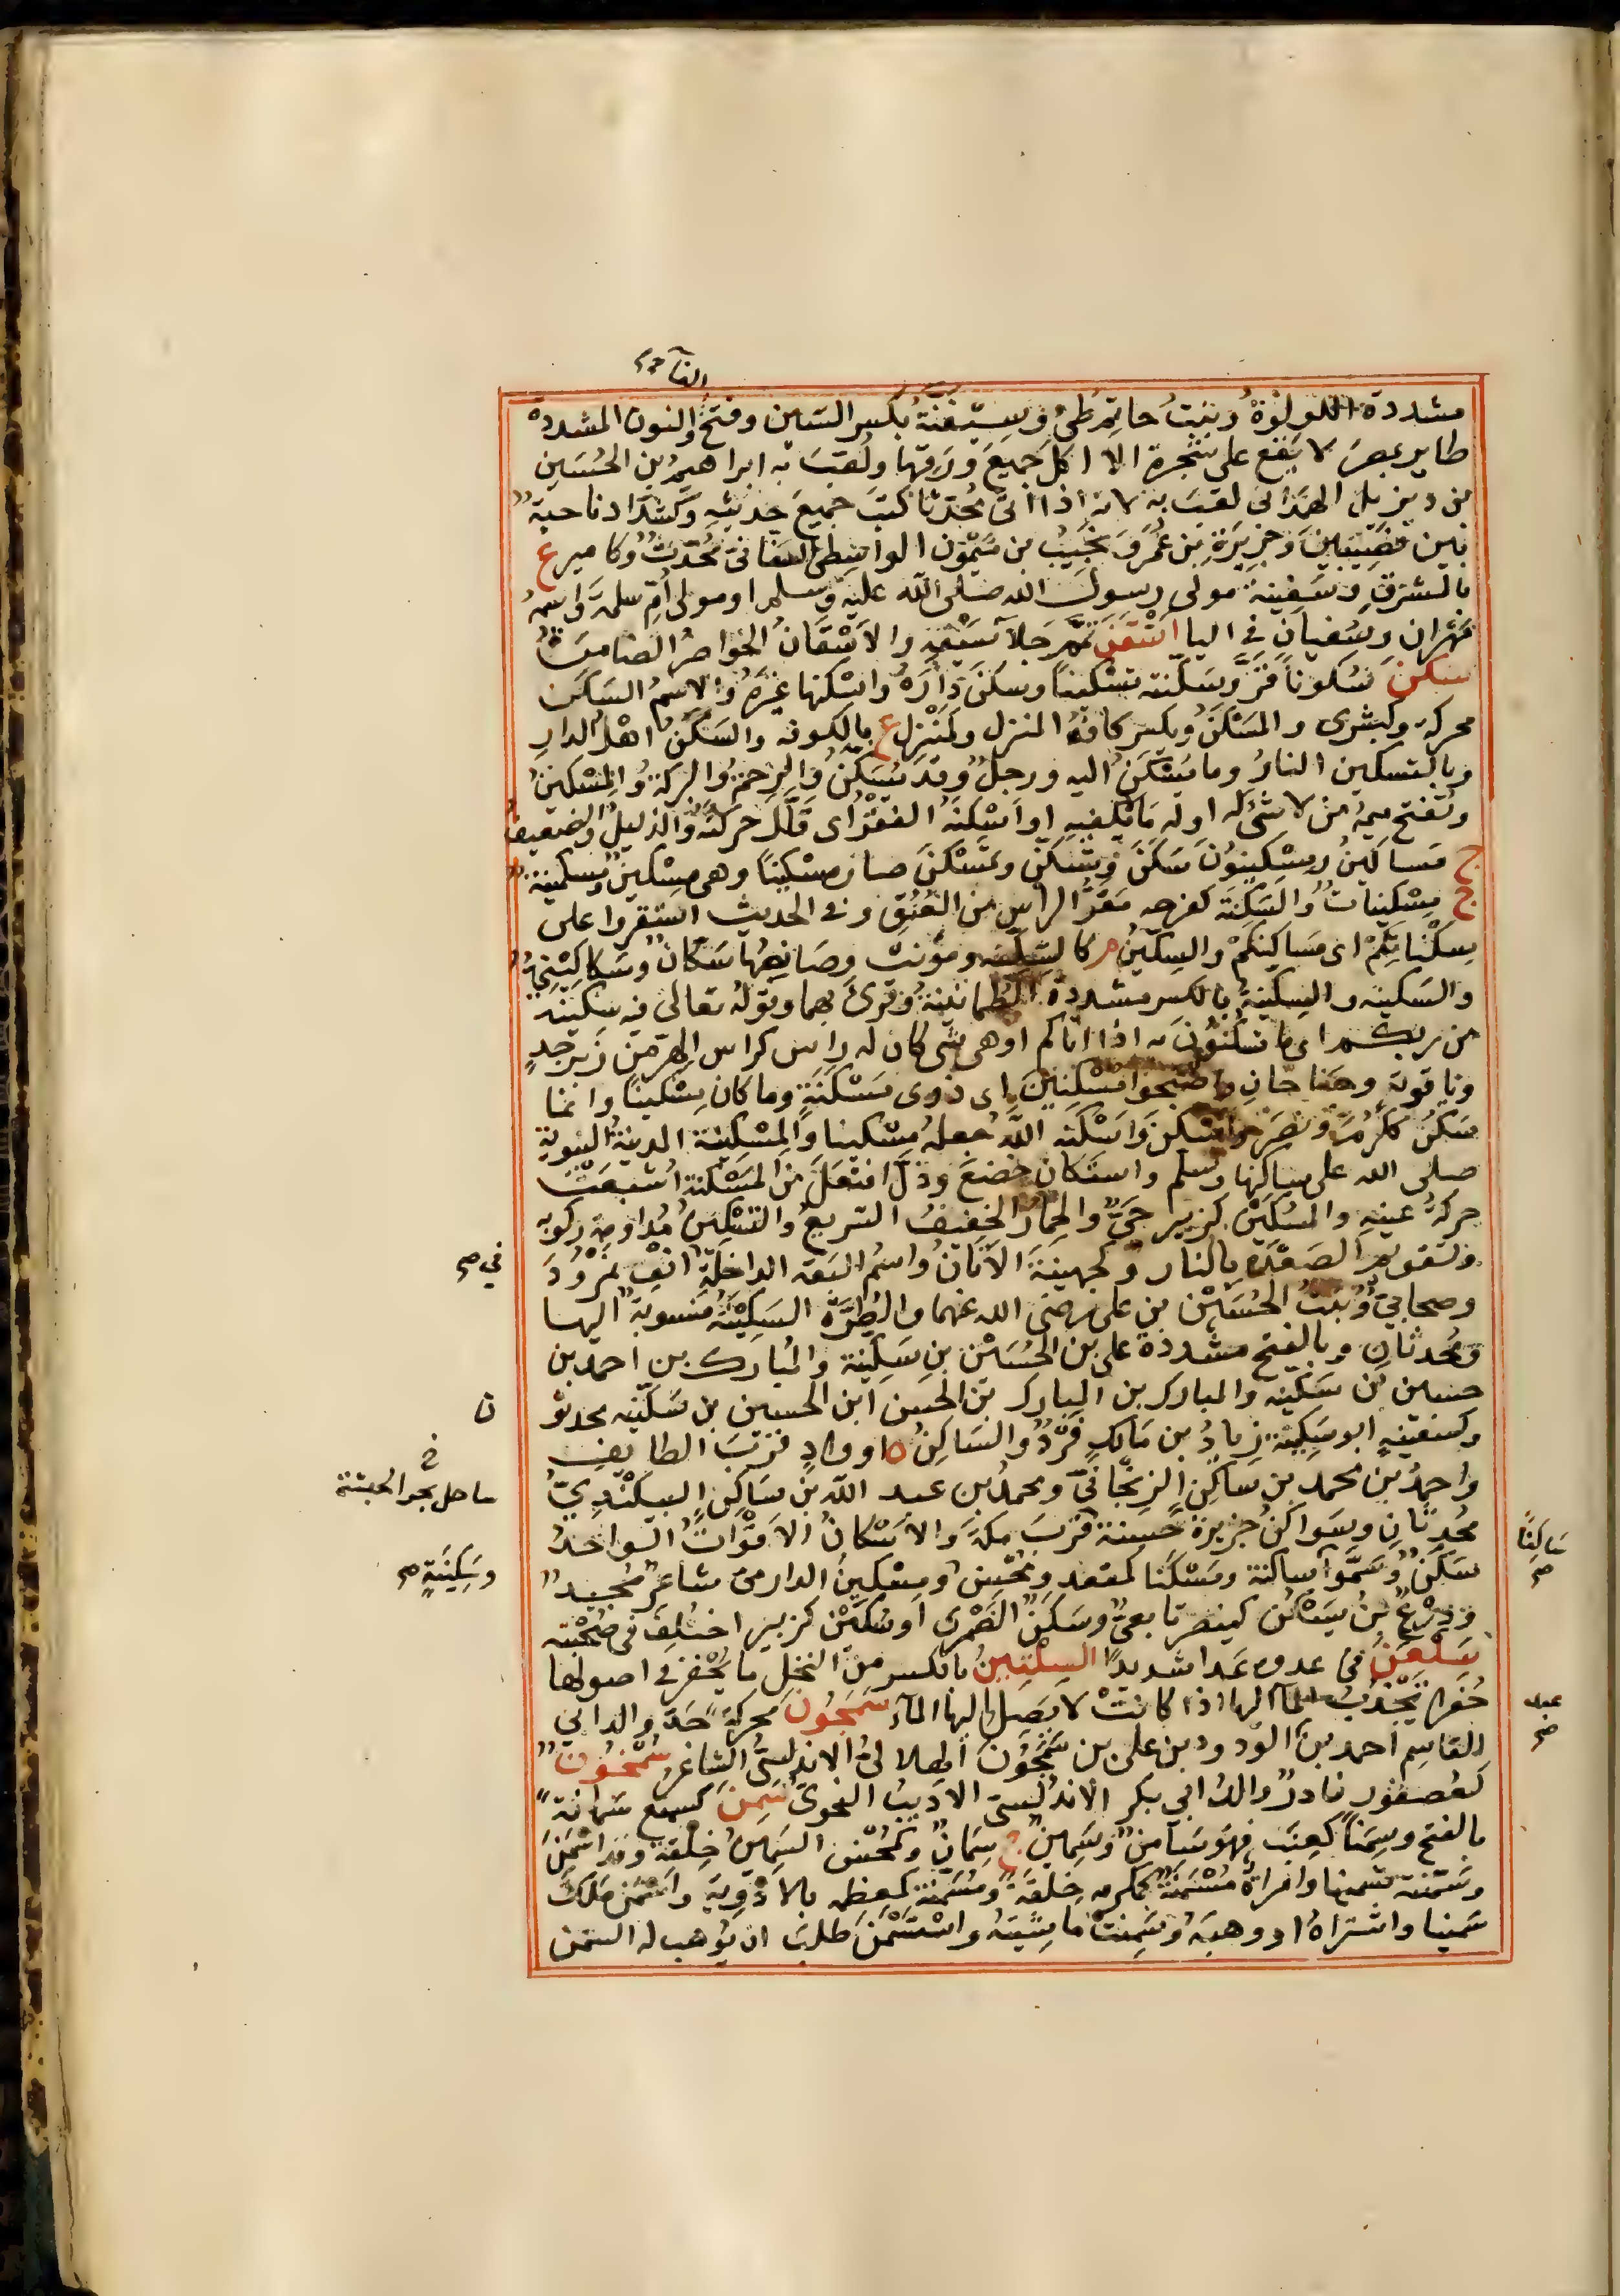 الفاء صح
مشددة اللولوة وبنت حاتم طي وسيفنة بكسر السين وفتح والنون المشددة
طاير بمصر لا يقع على شجرة الا اكل جميع ورقها ولقب به ابراهيم بن الحسين
بن ديزيل الهمداني لقب به لانه اذا اتى محدثا كتب جميع حديثه وكشداد ناحية
بين نصيبين وجزيرة بن عمر ونجيب بن ميمون الواسطي السفاني محدث وكامير ع
بالشرق وسفينة مولى رسول الله صلى الله عليه وسلم او مولى ام سلمة واسمه
مهران وسفيان في اليا اسقن تمم جلا سيفه والاسقان الخواصر الضامرة
سكن سكونا قر وسكنته تسكينا وسكن داره واسكنها غيره والاسم السكن
محركة وكبشرى والمسكن وبكسر كافه المنزل وكمنزل ع بالكوفة والسكن اهل الدار
وبالتسكين النار وما يسكن اليه ورجل وقد يسكن والرحمة والبركة والمسكين
وتفتح ميمه من لا شئ له او له ما لا يكفيه او اسكنه الفقر اى قلل حركته والذليل والضعيف
ج مساكين ومسكينون سكن وتسكن وتمسكن صار مسكينا وهي مسكين ومسكينة
ج مسكينات والسكنة كفرحه مقر الراس من العنق وفي الحديث استقروا على
سكناتكم اى مساكنكم والسكين م كالسكينه ومؤنث وصانعها سكان وسكاكيني
والسكينة والسكينة بالكسر مشددة الطمانينة وقرئ بهما وقوله تعالى فيه سكينة
من ربكم اى ما تسكنون به اذا اتاكم او هي شى كان له راس كراس الهر من زبرجد
وياقوت وجناحان واصبحوا مسكنين اى ذوى مسكنة وما كان مسكينا وانما
سكن ككرم ونصر واسكن واسكنه الله جعله مسكينا والمسكينة المدينة النبوية
صلى الله على ساكنها وسلم واستكان خضع وذل افتعل من المسكنة اشبعت
حركة عينه والسكين كزبير حي والحمار الخفيف السريع والتسكين مداومة ركوبه
وتقويم الصعدة بالنار وكجهينة الاتان واسم البقه الداخلة انف نمرود
في صح
وصحابي وبنت الحسين بن على رضى الله عنهما والطرة السكينية منسوبة اليها
ومحدثان وبالفتح مشددة على بن الحسين بن سكينة والمبارك بن احمد بن
حسين بن سكينه والمبارك بن المبارك بن الحسن ابن الحسين بن سكينه محدثو
ن
وكسفينه ابو سكينة زياد بن مالك فرد والساكن ه او واد قرب الطايف
واحمد بن محمد بن ساكن الزنجاني ومحمد بن عبد الله بن ساكن البيكندي
خ
ساحل بحر الحبشة
محدثان وسواكن جزيرة حسنة قرب مكة والاسكان الاقوات الواحد
ساكنا
صح
سكن وسموا ساكنة ومسكنا كمقعد ومحسن ومسكين الدارمى شاعر مجيد
وسكينة صح
ودرع بن يسكن كينصر تابعي وسكن الضمرى او سكين كزبير اختلف في صحبته
سلعن في عدوه عدا شديدا السلتين بالكسر من النخل ما يحفر في اصولها
حفر تجذب الماء اليها اذا كانت لا يصل اليها الماء سمجون محركة جد والد ابي
عبد
صح
القاسم احمد بن الودود بن على بن سمجون الهلالى الاندلسي الشاعر سمحون
كعصفور نادر والد ابي بكر الاندلسى الاديب النحوى سمن كسمع سمانة
بالفتح وسمنا كعنب فهو سامن وسمين ج سمان وكمحسن السمين خلقة وقد اسمن
وسمنه تسمينا وامراة مسمنة كمكرمه خلقة ومسمنة كمعظمه بالادوية واسمن ملك
سمينا واشتراه او وهبه وسمنت ماشيته واستسمن طلب ان يوهب له السمن